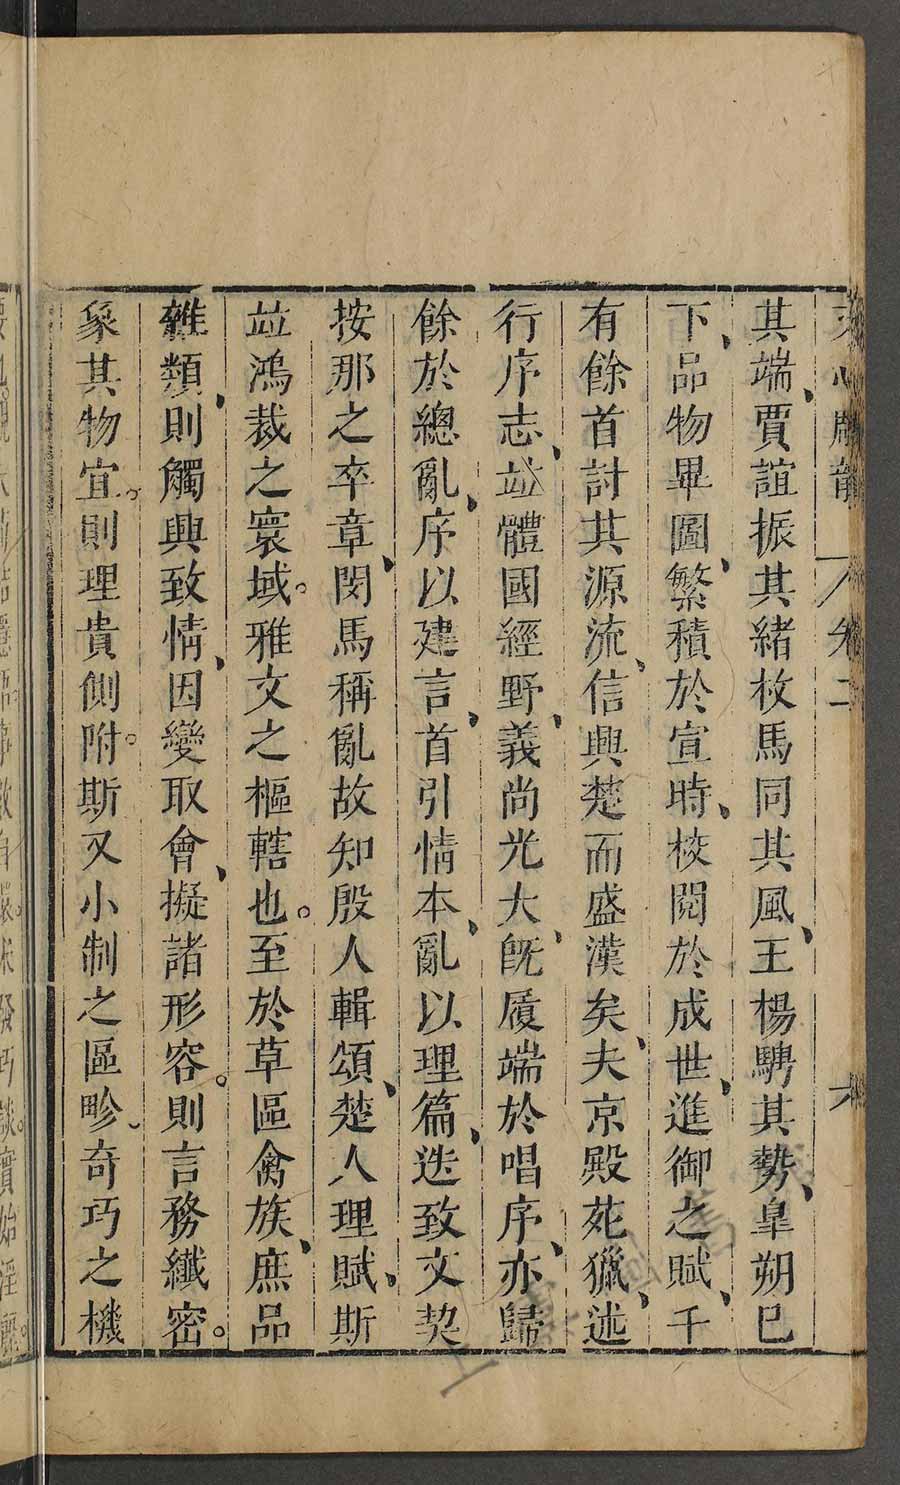 文心雕龍 卷二 六
其端、賈誼振其緒枚馬同其風、王楊騁其勢、皐朔已
下、品物畢圖、繁積於宣時、校閱於成世、進御之賦、千
有餘首討其源流、信興楚而盛漢矣、夫京殿苑獵、述
行序志、竝體國經野、義尚光大、旣履端於唱序、亦歸
餘於總亂、序以建言、首引情本、亂以理篇、迭致文契
按那之卒章、閔馬稱亂故知殷人輯頌、楚人理賦、斯
竝鴻裁之寰域。雅文之樞轄也。至於草區禽族、庶品
雜類、則觸興致情、因變取會、擬諸形容。則言務纖密。
象其物宜。則理貴側附。斯又小制之區畛、奇巧之機